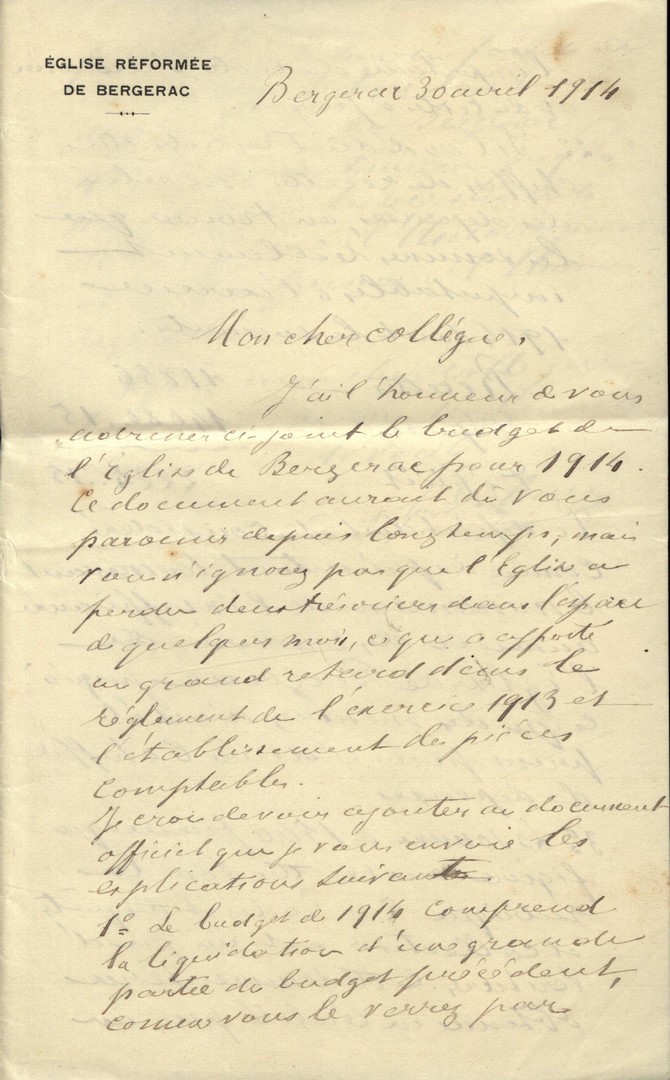 ÉGLISE RÉFORMÉE
DE BERGERAC
Bergerac 30 avril 1914
Mon cher collègue,
J'ai l'honneur de vous
adresser ci-joint le budget de
l'Eglise de Bergerac pour 1914.
Ce document aurait dû vous
parvenir depuis longtemps, mais
vous n'ignorez pas que l'Eglise a
perdu deux trésoriers dans l'espace
de quelques mois, ce qui a apporté
un grand retard dans le
règlement de l'exercice 1913 et
l'établissement des pièces
comptables.
Je crois devoir ajouter au document
officiel que je vous envoie les
explications suivantes.
1º Le budget de 1914 comprend
la liquidation d'une grande
partie du budget précédent,
comme vous le verrez par